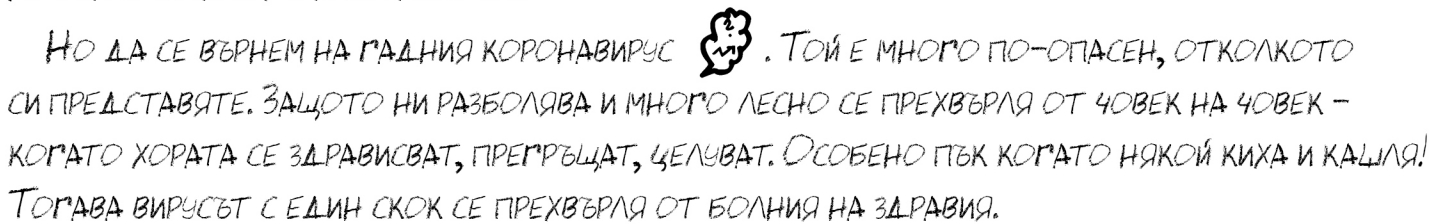 Но да се върнем на гадния коронавирус . Той е много по-опасен, отколкото
си представяте. Защото ни разболява и много лесно се прехвърля от човек на човек –
когато хората се здрависват, прегръщат, целуват. Особено пък когато някой киха и кашля!
Тогава вирусът с един скок се прехвърля от болния на здравия.